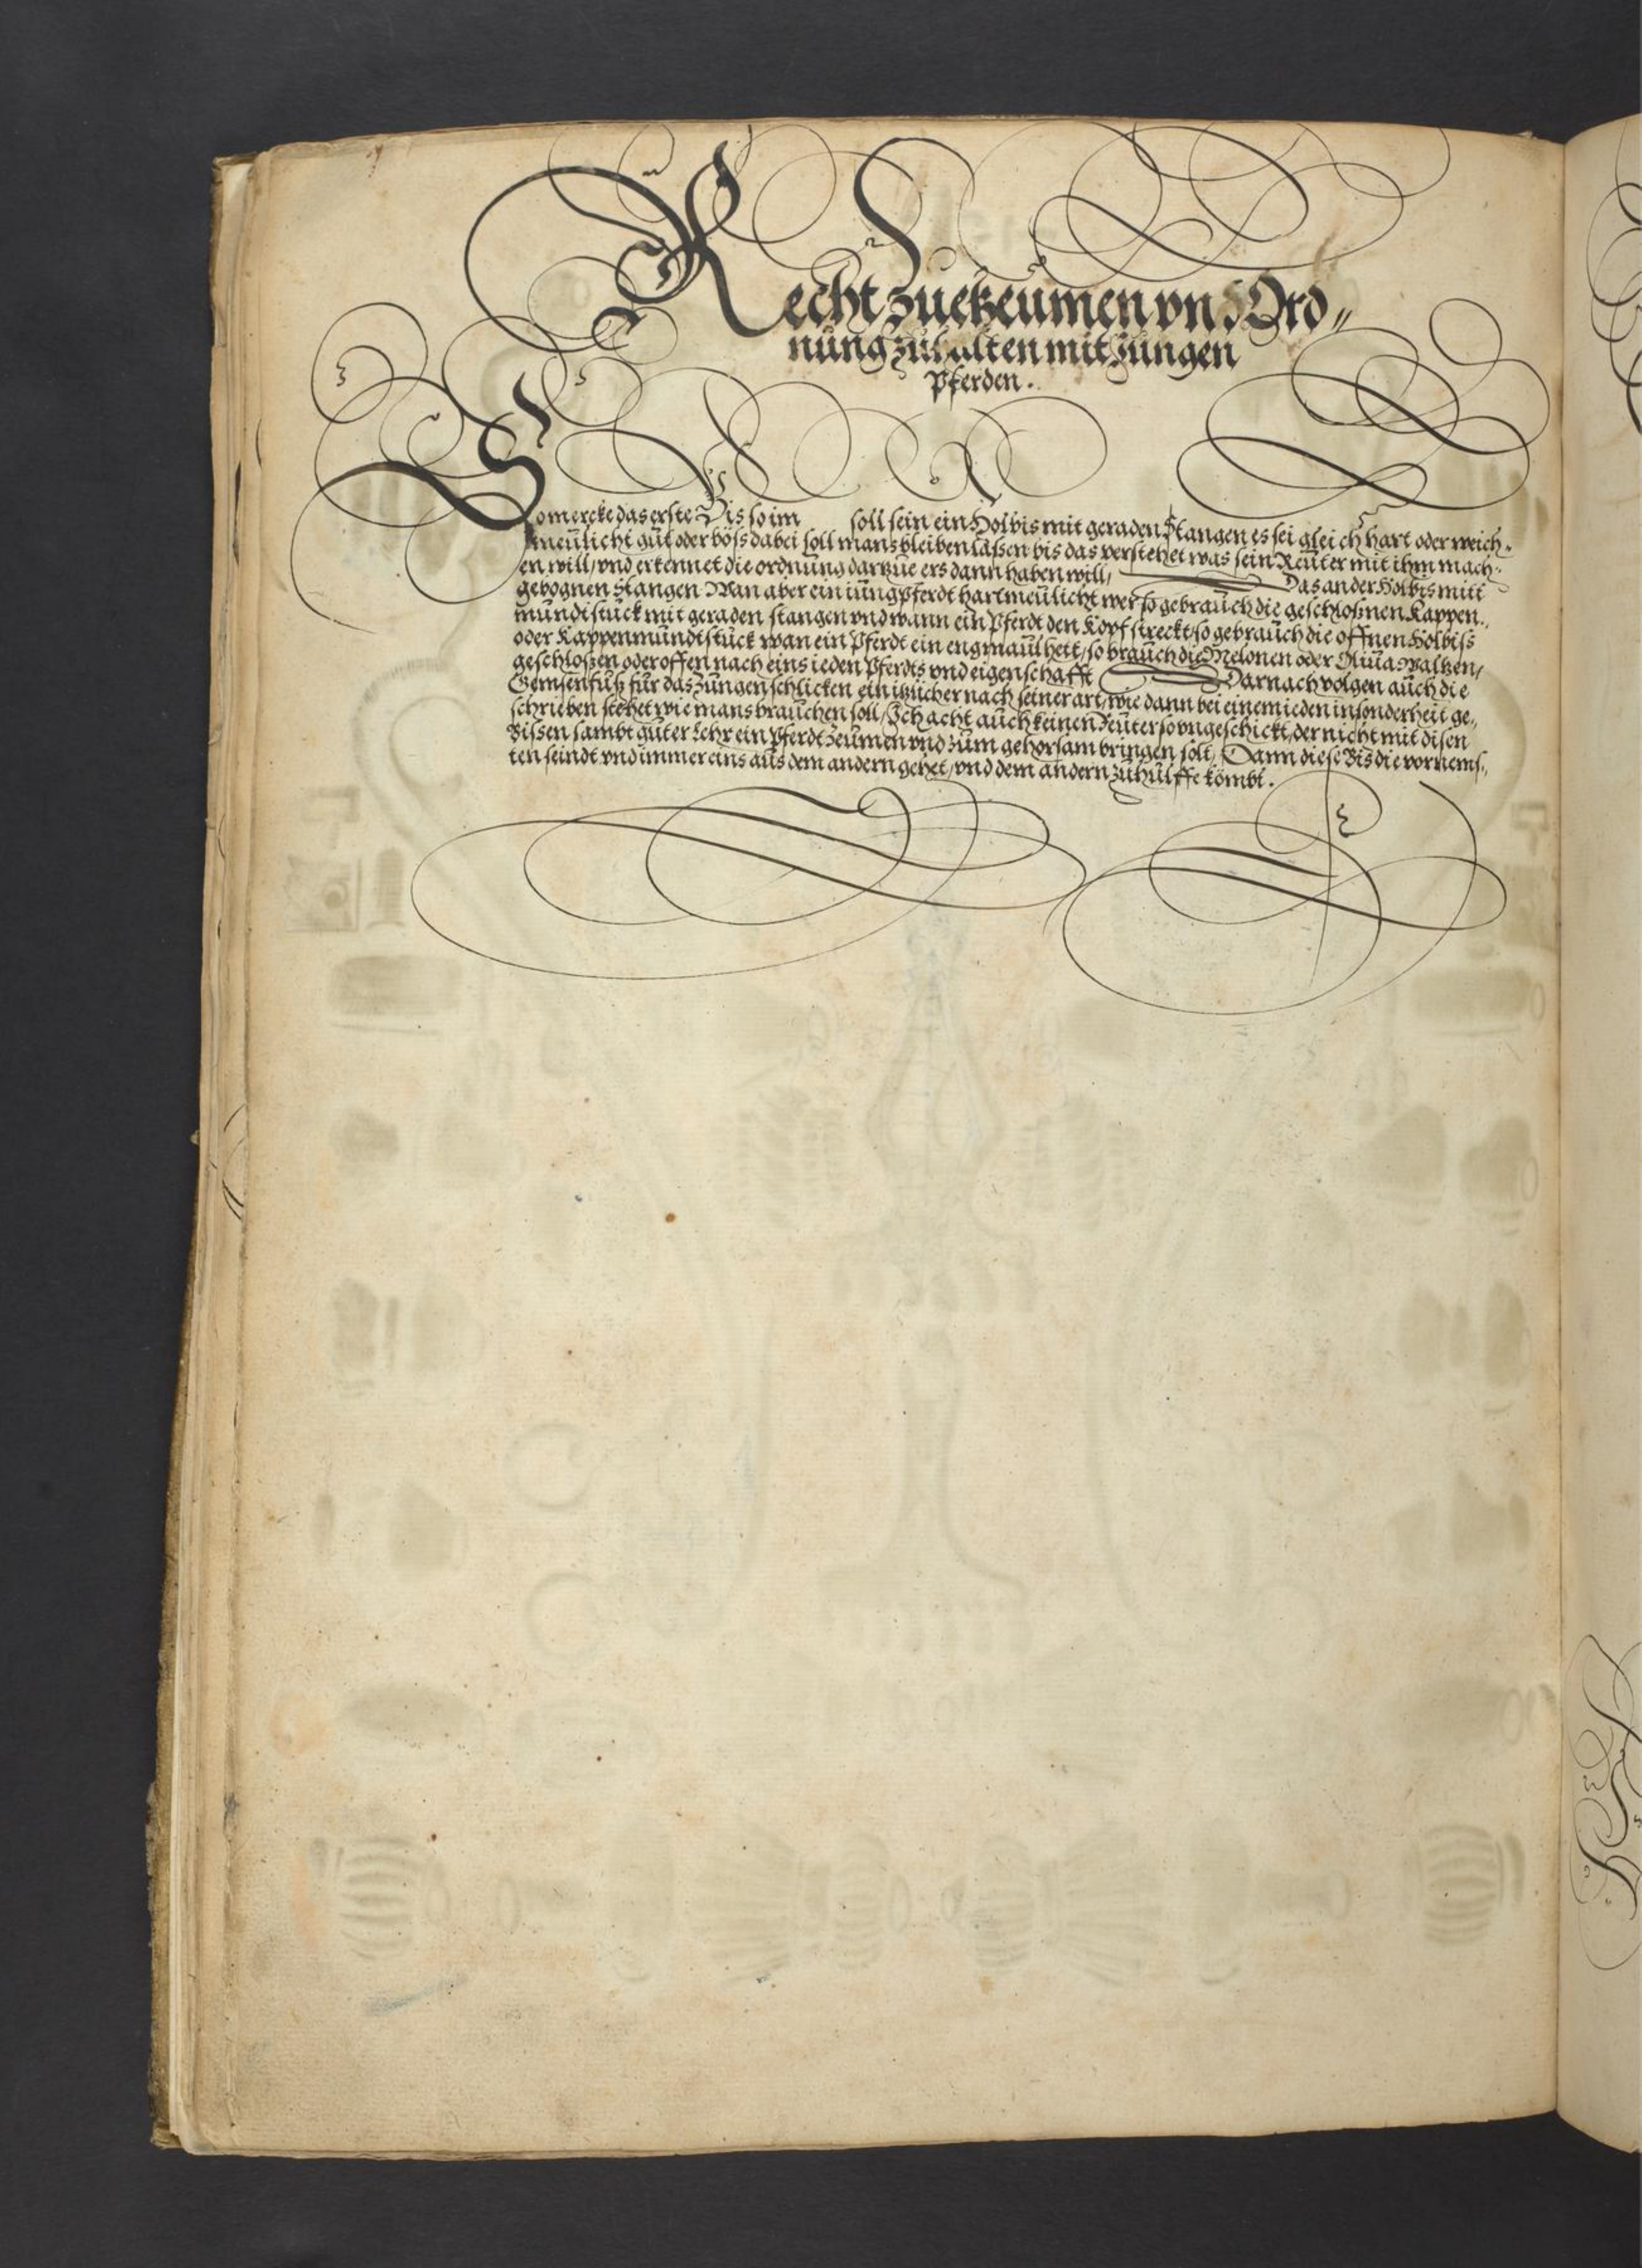 Recht zuekzeumen vnd Ord„
nung zuhalten mit Jungen
Pferden.
So mercke das erste Bis so im soll sein ein Holbis mit geraden Stangen es sei gleich hart oder weich„
meulicht gut oder böss dabei soll mans bleiben lassen bis das verstehet was sein Reuter mit ihm mach„
en will/ vnd erkennet die ordnung darzue ers dann haben will/ Das ander Holbis mitt
gebognen Stangen Wan aber ein iung Pferdt hartmeulicht wer so gebrauch die geschloßnen Kappen„
mundtstuck mit geraden stangen vnd wann ein Pferdt den Kopf streckt/ so gebrauch die offnen Holbiss
oder Kappenmundtstuck wan ein Pferdt ein eng maul hett/ so brauch die Melonen oder Oliua waltzen/
geschloßen oder offen nach eins ieden Pferdts vnd eigenschafft Darnach volgen auch die
Gemsenfuß für das Zungen schlicken ein itzlicher nach seiner art/ wie dann bei einem ieden insonderheit ge„
schrieben stehet wie mans brauchen soll/ Ich acht auch keinen Reuter so vngeschickt/ der nicht mit disen
Bissen sambt guter Lehr ein Pferdt zeumen vnd zum gehorsam bringen solt/ Dann diese Bis die vornems„
ten seindt vnd immer eins aus dem andern gehet/ vnd dem andern zuhulffe kömbt.